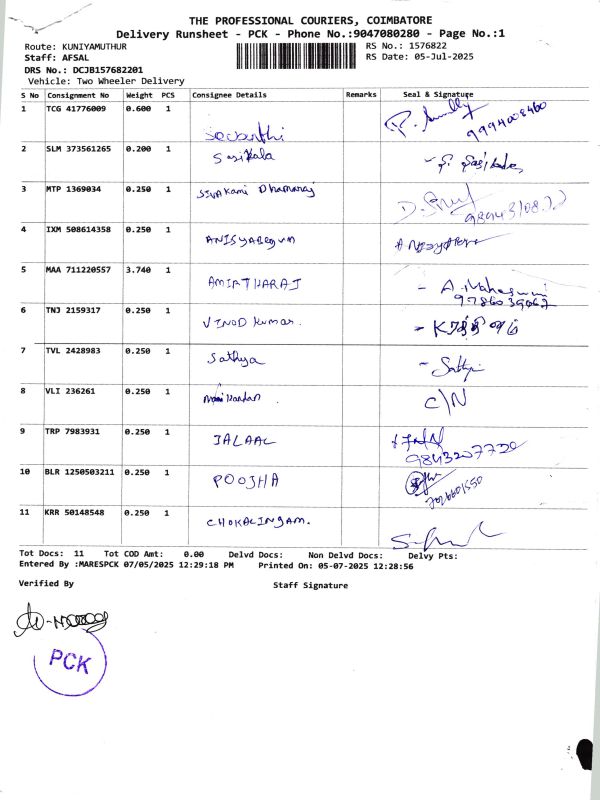 THE PROFESSIONAL COURIERS, COIMBATORE
Delivery Runsheet - PCK - Phone No.:9047080280 - Page No.:1
Route: KUNIYAMUTHUR
RS No.: 1576822
Staff: AFSAL
RS Date: 05-Jul-2025
DRS No.: DCJB157682201
Vehicle: Two Wheeler Delivery
S No Consignment No Weight PCS Consignee Details Remarks Seal & Signature
1 TCG 41776009 0.600 1 9994008460
2 SLM 373561265 0.200 1 Sasikala
3 MTP 1369034 0.250 1 Sivakami Dharmaraj
4 IXM 508614358 0.250 1 ANISYABEGUM
5 MAA 711220557 3.740 1 AMIRTHARAJ - A. Maheswari
9786039667
6 TNJ 2159317 0.250 1 VINOD Kumar.
7 TVL 2428983 0.250 1 Sathya - Sathya
8 VLI 236261 0.250 1 Manikandan C/N
9 TRP 7983931 0.250 1 JALAAL
9843207750
10 BLR 1250503211 0.250 1 POOJHA
11 KRR 50148548 0.250 1 CHOKALINGAM.
Tot Docs: 11 Tot COD Amt: 0.00 Delvd Docs: Non Delvd Docs: Delvy Pts:
Entered By :MARESPCK 07/05/2025 12:29:18 PM Printed On: 05-07-2025 12:28:56
Verified By Staff Signature
PCK